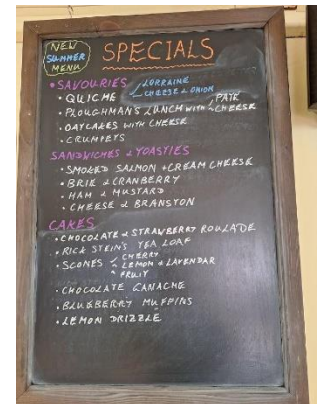 NEW
SUMMER
MENU
SPECIALS
• SAVOURIES
LORRAINE
• QUICHE
CHEESE & ONION
PATE
• PLOUGHMANS LUNCH WITH CHEESE
• OATCAKES WITH CHEESE
• CRUMPETS
SANDWICHES & TOASTIES
• SMOKED SALMON + CREAM CHEESE
• BRIE & CRANBERRY
• HAM & MUSTARD
• CHEESE & BRANSTON
CAKES
• CHOCOLATE & STRAWBERRY ROULADE
• RICK STEIN'S TEA LOAF
CHERRY
• SCONES LEMON & LAVENDAR
FRUIT
• CHOCOLATE GANACHE
• BLUEBERRY MUFFINS
• LEMON DRIZZLE